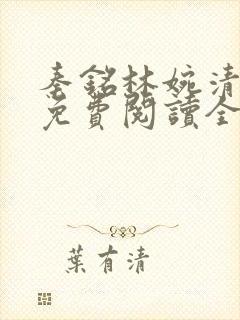 秦銘林婉清
免費閱讀全
葉有清